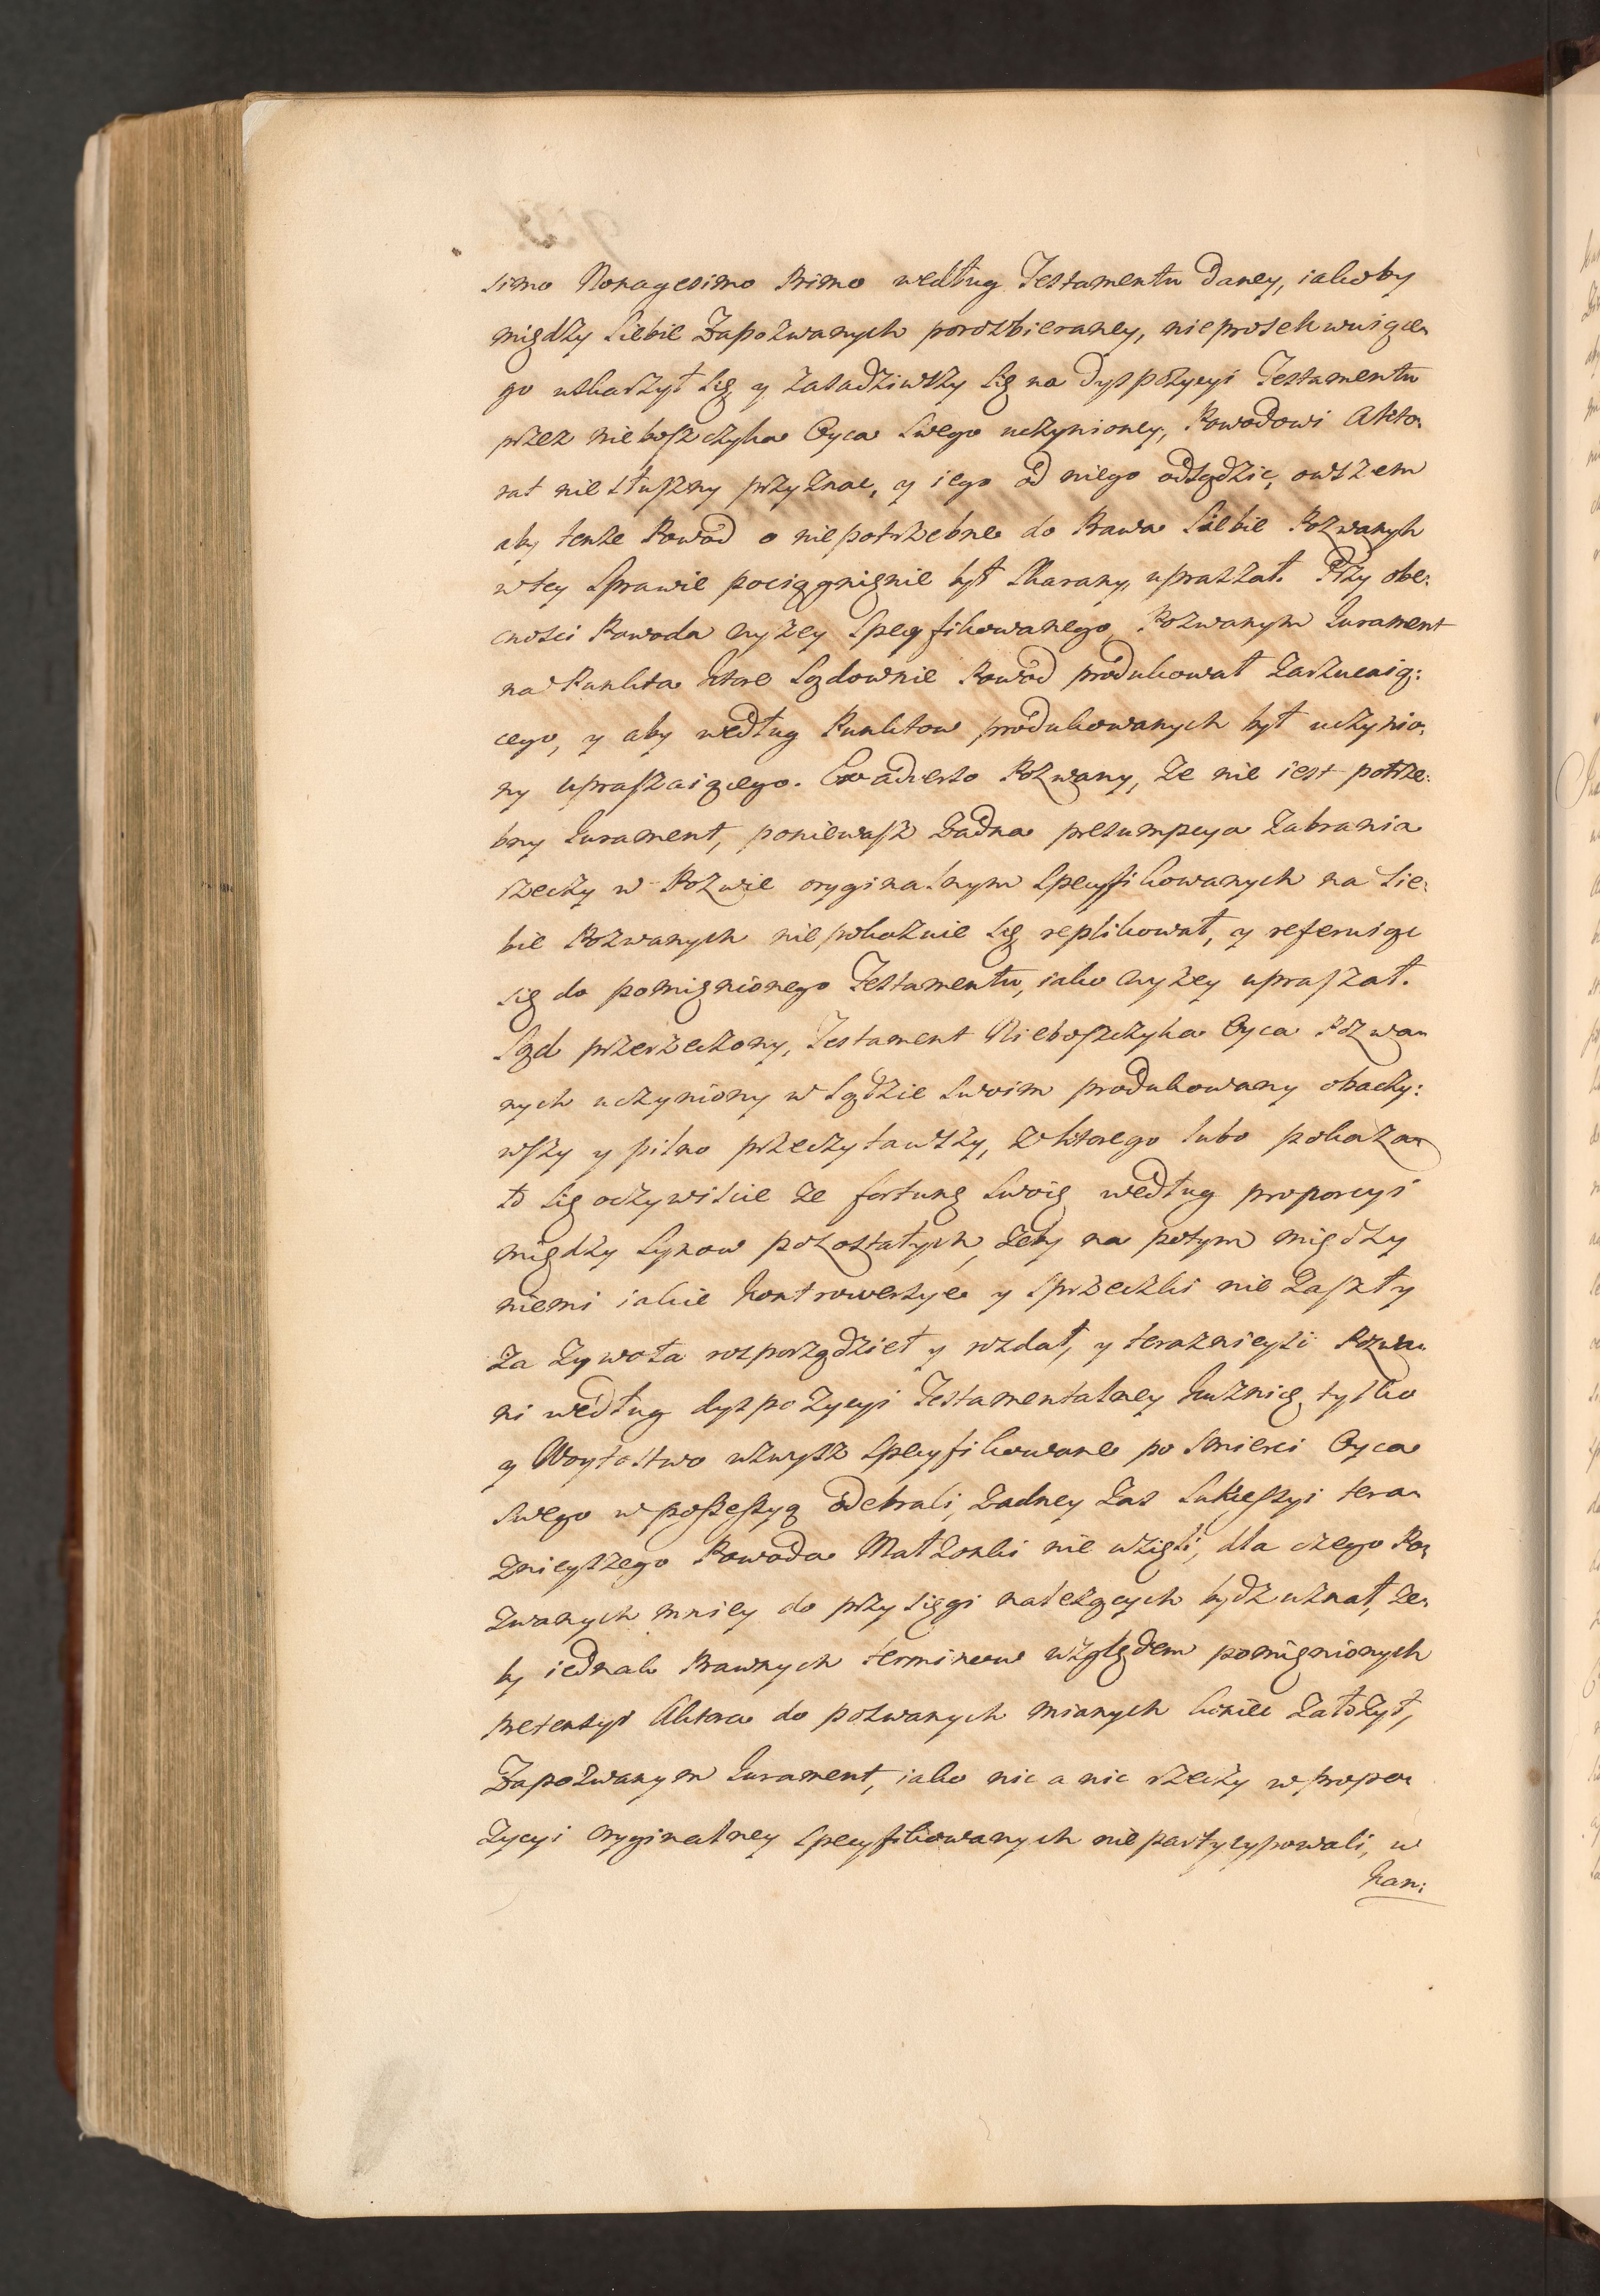 simo Nonagesimo Primo według Testamentu daney, iakoby
między siebie Zapozwanych porozbieraney, nieprosekwuiące„
go uskarzył się, y zasadziwszy się na dyspozycyi Testamentu
przez nieboszczyka Oyca swego uczynioney, Powodowi Akto„
rat niesłuszny przyznac, y iego od niego odsądzic, owszem
aby tenze Powod o niepotrzebne do Prawa siebie Pozwanych
w tey sprawie pociągnięnie był skarany, upraszał. Przy obe„
cnosci Powoda wyzey specyfikowanego, Pozwanym Iurament
na Punkta ktore sądownie Powod produkował zarzucaią:
cego, y aby według Punktow produkowanych był uczynio„
ny upraszaiącego. Ex adverso Pozwany, ze nie iest potrze:
bny Iurament, poniewasz zadna presumpcya zabrania
rzeczy w Pozwie oryginalnym specyfikowanych na sie„
bie Pozwanych niepokazuie się replikował, y referuiąc
się do pomięnionego Testamentu, iako wyzey upraszał.
Sąd przerzeczony, Testament Nieboszczyka Oyca Pozwa„
nych uczyniony w Sądzie swoim produkowany obaczy:
wszy y pilno przeczytawszy, z ktorego lubo pokaza„
ło się oczywiscie ze fortunę swoię według proporcyi
między synow pozostałych, zeby na potym między
niemi iakie kontrowersye y sprzeczki nie zaszły
za zywota rozporządzieł y rozdał, y teraznieysi Pozwa„
ni według dyspozycyi Testamentalney kuznię tylko
y Woytostwo wzwysz specyfikowane po smierci Oyca
swego w possessyą odebrali, zadney zas sukcessyi tera„
znieyszego Powoda Małzonki nie wzięli, dla czego Po„
zwanych mniey do przysięgi nalezących bydz uznał, ze„
by iednak Prawnych terminow względem pomięnionych
pretensyi Aktora do pozwanych mianych koniec załozył,
Zapozwanym Iurament, iako nic a nic rzeczy w propo„
zycyi oryginalney specyfikowanych niepartycypowali, w
kan: